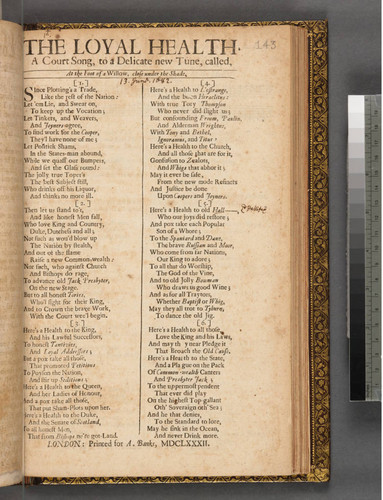 THE LOYAL HEALTH,
143
A Court Song, to a Delicate new Tune, called,
At the Foot of a Willow, close under the Shade,
[1.]
SInce Plotting's a Trade,
Like the rest of the Nation:
Let 'em Lie, and Swear on,
To keep up the Vocation;
Let Tinkers, and Weavers,
And Joyners agree,
To find work for the Cooper,
They'l have none of me;
Let Politick Shams,
In the States-man abound,
While we quaff our Bumpers,
And set the Glass round:
The jolly true Toper's
The best Subject still,
Who drinks off his Liquor,
And thinks no more ill.
[2.]
Then let us stand to't,
And like honest Men fall,
Who love King and Country,
Duke, Dutchess and all;
Not such as wou'd blow up
The Nation by stealth,
And out of the flame
Raise a new Common-wealth;
Nor such, who against Church
And Bishops do rage,
To advance old Jack Presbyter,
On the new Stage.
But to all honest Tories,
Who'l fight for their King,
And to Crown the brave Work,
With the Court we'l begin.
[3.]
Here's a Health to the King,
And his Lawful Successors,
To honest Tantivies,
And Loyal Addressers;
But a pox take all those,
That promoted Petitions
To Poyson the Nation,
And stir up Seditions;
Here's a Health to the Queen,
And her Ladies of Honour,
And a pox take all those,
That put Sham-Plots upon her.
Here's a Health to the Duke,
And the Senate of Scotland,
To all honest Men,
That from Bishops ne're got Land.
[4.]
Here's a Health to L'estrange,
And the boon Heraclitus:
With true Tory Thompson
Who never did slight us;
But confounding Frank
And Alderman
With Tony and Bethel,
Ignoramus, and Titus:
Here's a Health to the Church,
And all those that are for it,
Confusion to Zealots,
And Whigs that abhor it;
May it ever be safe,
From the new mode Refiners
And Justice be done
Upon Coopers and Joyners.
[5.]
Here's a Health to old Hall
Who our Joys did restore;
And pox take each Popular
Son of a Whore;
To the Spaniard and Dane,
The brave Russian and Moor,
Who come from far Nations,
Our King to adore;
To all that do Worship,
The God of the Vine,
And to old Jolly Bowman
Who draws us good Wine;
And as for all Traytors,
Whether Baptist or Whig,
May they all trot to Tyburn,
To dance the old Jig.
[6.]
Here's a Health to all those
Love the King and his Laws,
And may th y neer Pledge it
That Broach the Old Cause.
Here's a Health to the State,
And a Plague on the Pack
Of Common-wealth Canters
And Presbyter Jack;
To the uppermost pendent
That ever did play
On the highest Top-gallant
Oth' Soveraign oth' Sea;
And he that denies,
To the Standard to lore,
May he sink in the Ocean,
And never Drink more.
LONDON: Printed for A. Banks, MDCLXXXII.